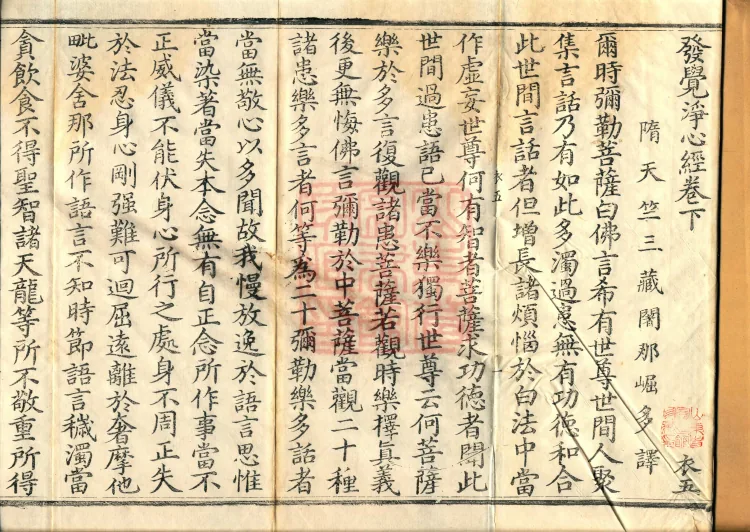 發覺淨心經卷下
隋天竺三藏闍那崛多譯
爾時彌勒菩薩白佛言希有世尊世間人聚
集言話乃有如此多濁過患無有功德和合
此世間言話者但增長諸煩惱於白法中當
作虛妄世尊何有智者菩薩求功德者聞此
世間過患語已當不樂獨行世尊云何菩薩
樂於多言復觀諸患菩薩若觀時樂擇真義
後更無悔佛言彌勒於中菩薩當觀二十種
諸患樂多言者何等為二十彌勒樂多話者
當無敬心以多聞故我慢放逸於語言思惟
當染著當失本念無有自正念所作事當不
正威儀不能伏身心所行之處身不周正失
於法忍身心剛強難可迴屈遠離於奢摩他
毗婆舍那所作語言不知時節語言穢濁當
貪飲食不得聖智諸天龍等所不敬重所得
衣五
衣五 一